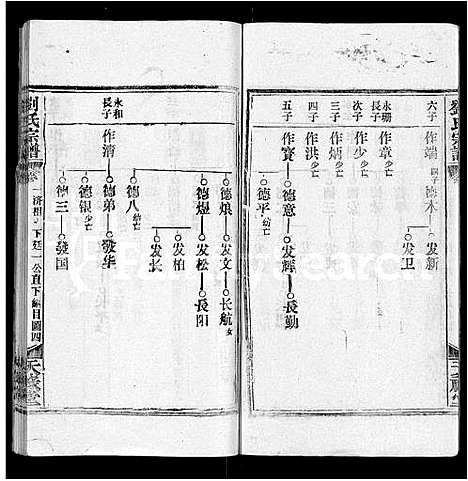 劉氏宗譜
六子 作端 德木 发新
发卫
永珊長子 作章 少亡
次子 作少 少亡
三子 作炳 少亡
四子 作洪 少亡
五子 作賓 德意 发輝 長勤
德平 幼亡
永和長子 作清 德烺 发文 长航 女
德煜 发松 長阳
发柏
发长
德八 幼亡
德弟 發华
德银 少亡
德三 發国
劉氏宗譜
下廷一公直下 目圖四